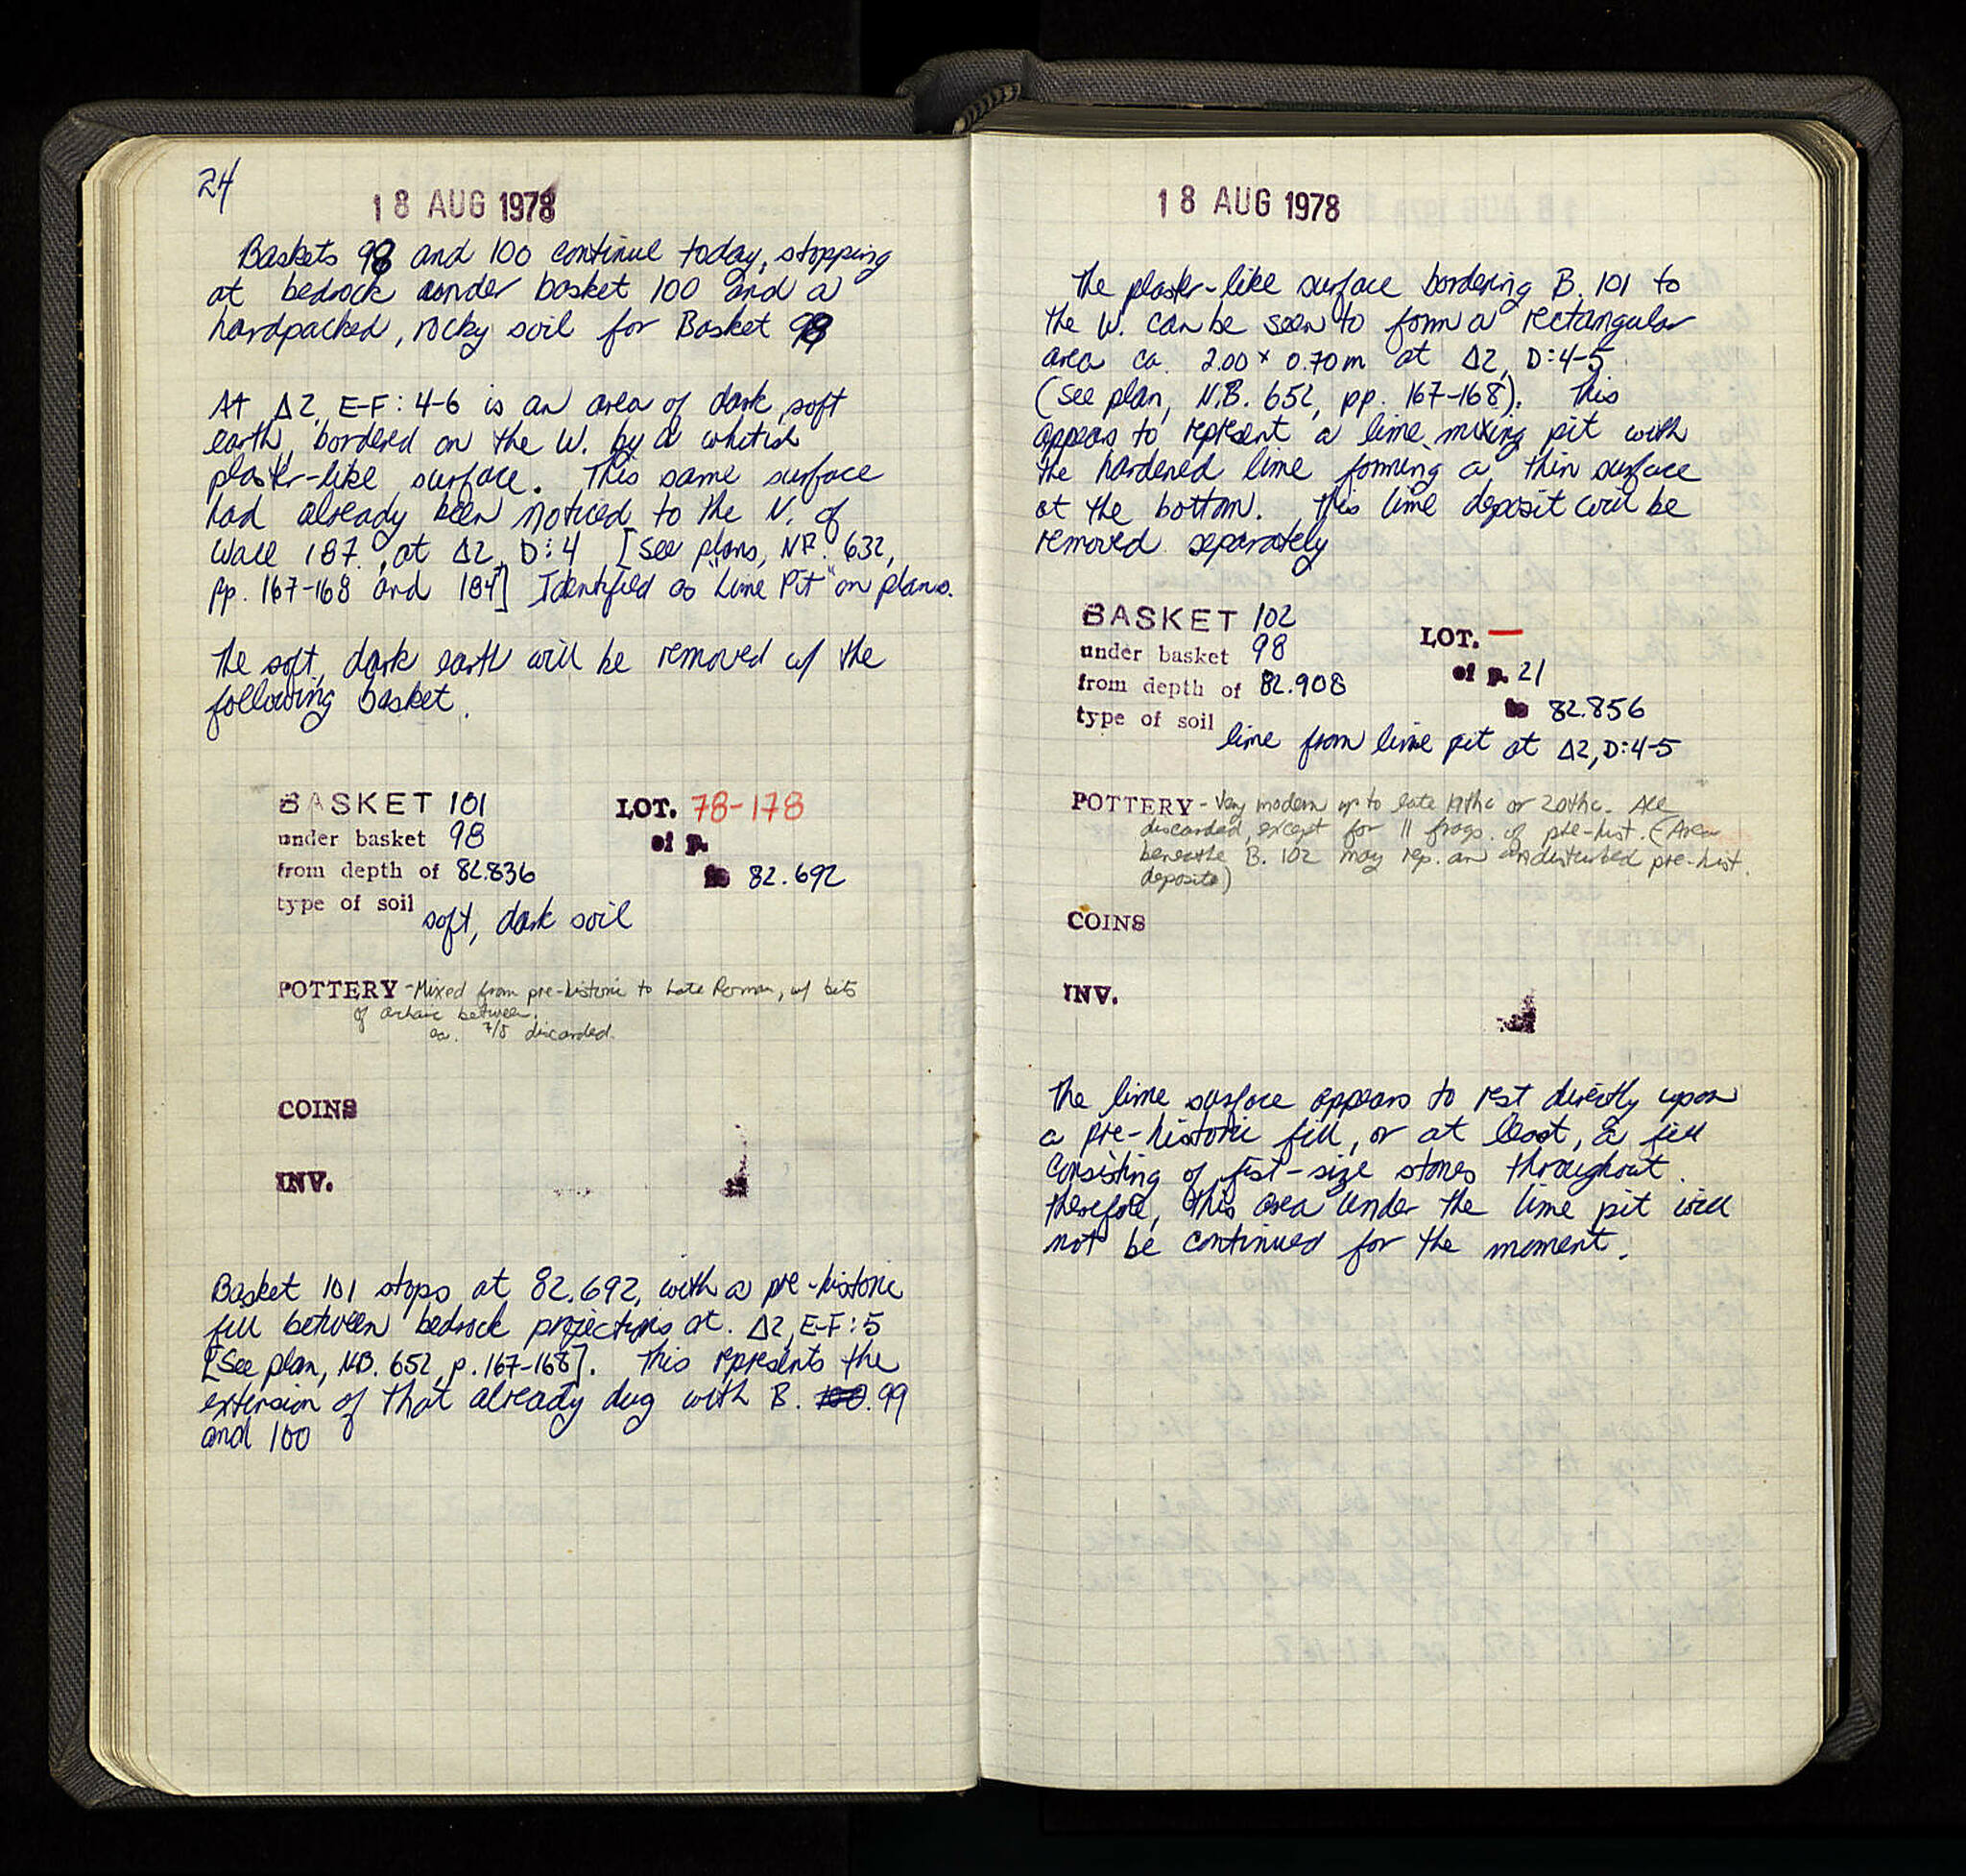 24
18 AUG 1978
Baskets 98 and 100 continue today, stopping
at bedrock under basket 100 and a
hardpacked, rocky soil for Basket 98
At Δ2, E-F: 4-6 is an area of dark, soft
earth, bordered on the W. by a whitish
plaster-like surface. This same surface
had already been noticed to the N. of
Wall 187, at Δ2, D:4 [See plans, NB. 632,
pp. 167-168 and 184] Identified as "Lime Pit" on plans.
The soft, dark earth will be removed w/ the
following basket.
BASKET 101 LOT. 78-178
under basket 98 of p.
from depth of 82.836 to 82.692
type of soil soft, dark soil
POTTERY - Mixed from pre-historic to Late Roman, w/ bits
of archaic between.
ca. 7/8 discarded.
COINS
INV.
Basket 101 stops at 82.692, with a pre-historic
fill between bedrock projections at. Δ2, E-F:5
[See plan, NB. 652, p. 167-168]. This represents the
extension of that already dug with B. 100. 99
and 100
18 AUG 1978
The plaster-like surface bordering B. 101 to
the W. can be seen to form a rectangular
area ca. 2.00 x 0.70m at Δ2, D:4-5
(See plan, N.B. 652, pp. 167-168). This
appears to represent a lime mixing pit with
the hardened lime forming a thin surface
at the bottom. This lime deposit will be
removed separately
BASKET 102 LOT. —
under basket 98 of p. 21
from depth of 82.908 to 82.856
type of soil lime from lime pit at Δ2, D:4-5
POTTERY - Very modern up to late 19thc or 20thc. All
discarded, except for 11 frags. of pre-hist. (Area
beneathe B. 102 may rep. an undisturbed pre-hist.
deposite)
COINS
INV.
The lime surface appears to rest directly upon
a pre-historic fill, or at least, a fill
consisting of fist-size stones throughout.
Therefore, this area under the lime pit will
not be continued for the moment.